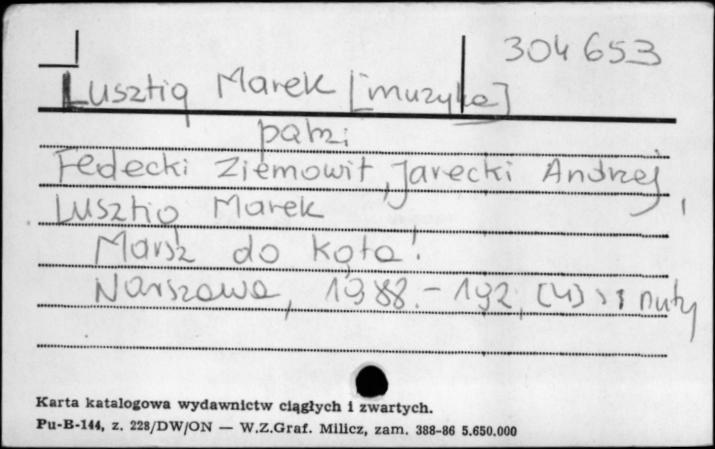 304653
Lusztig Marek [muzyka]
patrz:
Fedecki Ziemowit, Jarecki Andrzej,
Lusztig Marek
Marsz do kąta!
Warszawa, 1988. - 192, [4] s : nuty
Karta katalogowa wydawnictw ciągłych i zwartych.
Pu-B-144, z. 228/DW/ON — W.Z.Graf. Milicz, zam. 388-86 5.650.000